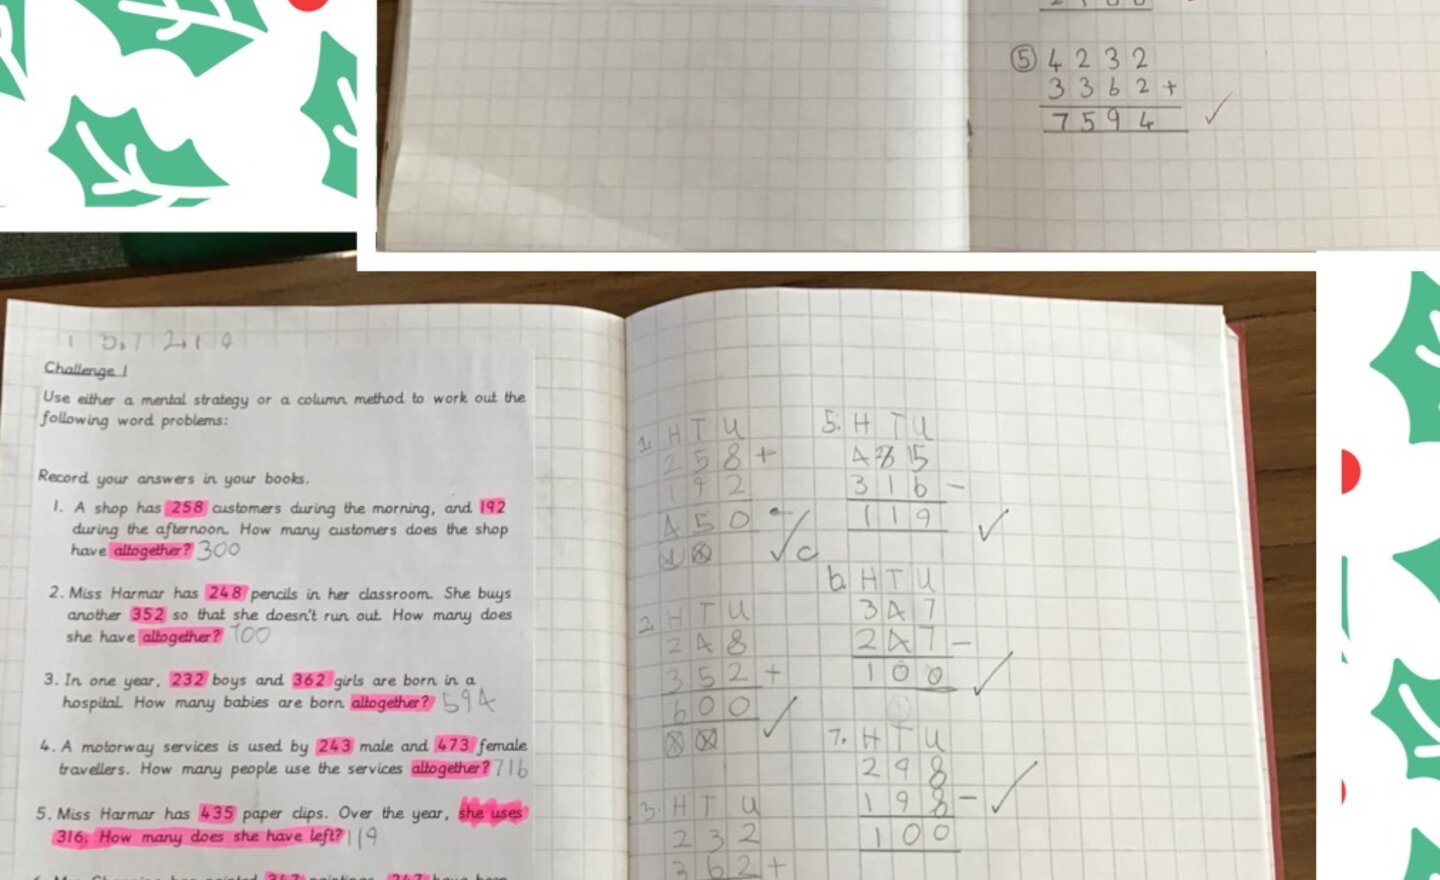 ⑤ 4 2 3 2
3 3 6 2 +
7 5 9 4 ✓
13.12.19
Challenge 1
Use either a mental strategy or a column method to work out the
following word problems:
Record your answers in your books.
1. A shop has 258 customers during the morning, and 192
during the afternoon. How many customers does the shop
have altogether? 300
2. Miss Harmar has 248 pencils in her classroom. She buys
another 352 so that she doesn't run out. How many does
she have altogether? 700
3. In one year, 232 boys and 362 girls are born in a
hospital. How many babies are born altogether? 594
4. A motorway services is used by 243 male and 473 female
travellers. How many people use the services altogether? 716
5. Miss Harmar has 435 paper clips. Over the year, she uses
316. How many does she have left? 119
1. H T U
2 5 8 +
1 9 2
4 5 0
✓ C
2. H T U
2 4 8
3 5 2 +
6 0 0 ✓
3. H T U
2 3 2
3 6 2 +
5. H T U
3 1 6 -
1 1 9 ✓
6. H T U
3 4 7
2 4 7 -
1 0 0 ✓
7. H T U
2 9 8
1 9 8 - ✓
1 0 0